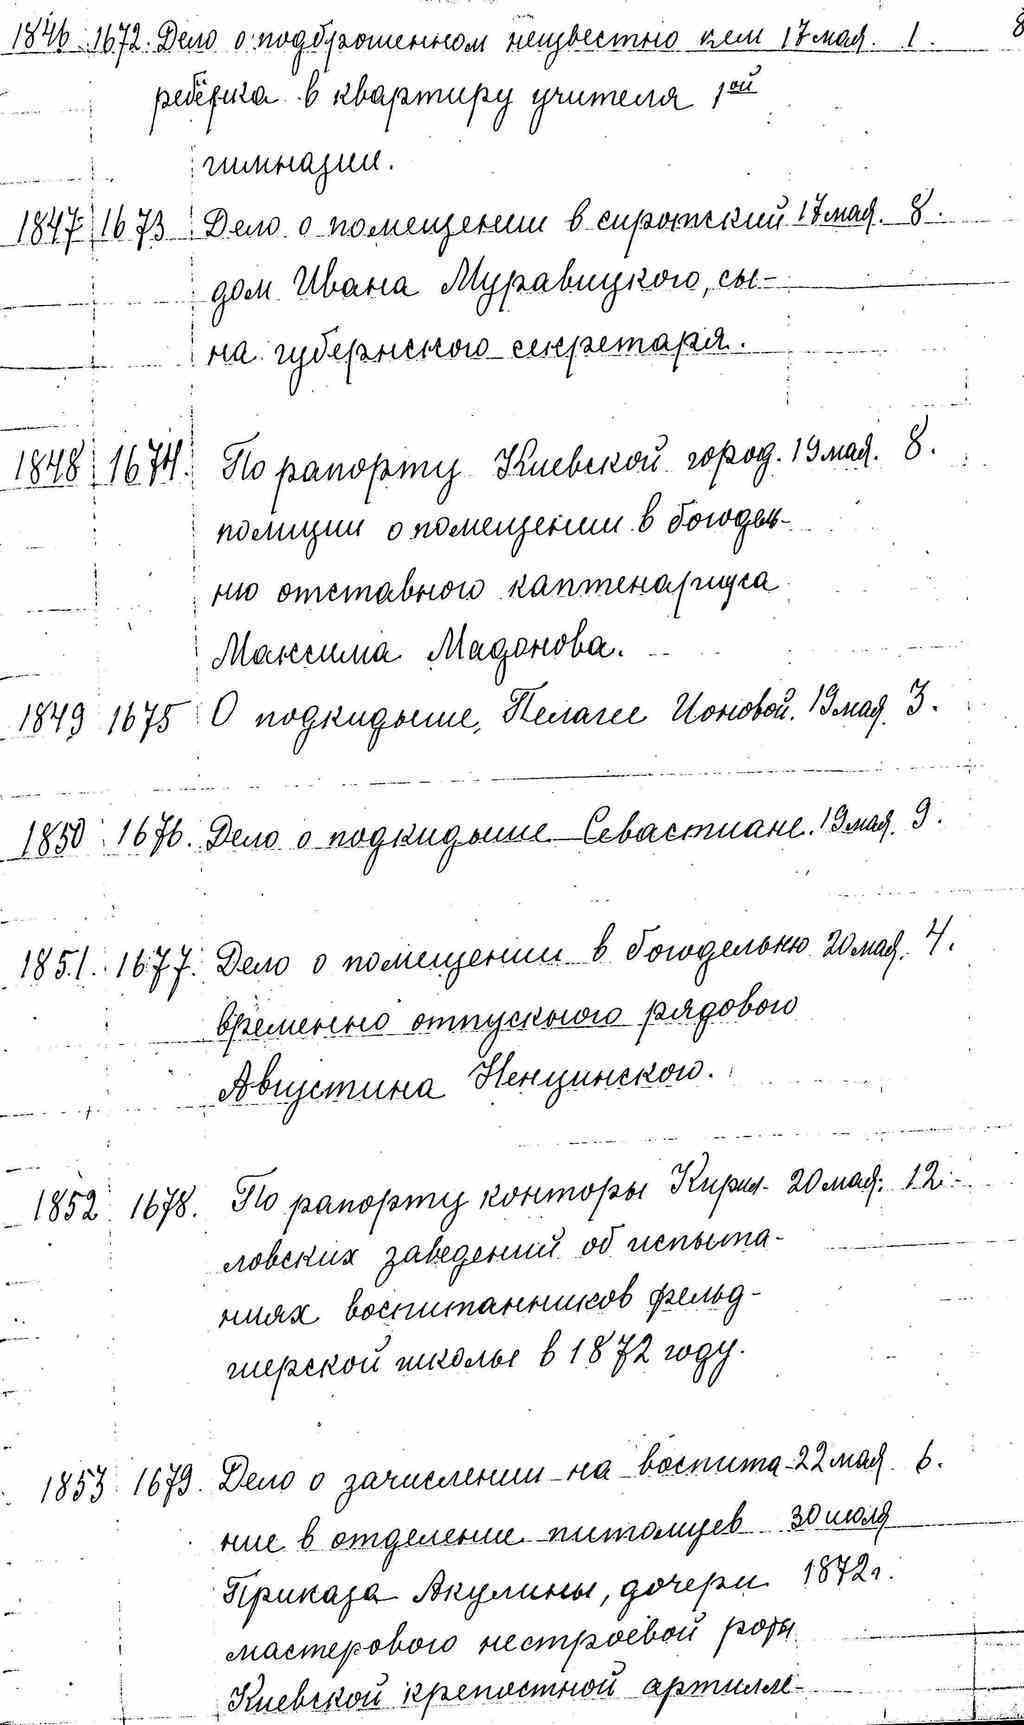 1846 1672. Дело о подброшенном неизвестно кем 17 мая. 1. 8
ребёнка в квартиру учителя 1ой
гимназии.
1847 1673 Дело о помещении в сиротский 17 мая. 8.
дом Ивана Муравицкого, сы-
на губернского секретаря.
1848 1674. По рапорту Киевской город. 19 мая. 8.
полиции о помещении в богодель-
ню отставного каптенариуса
Максима Мадонова.
1849 1675 О подкидыше, Пелагее Ионовой. 19 мая. 3.
1850 1676. Дело о подкидыше Севастиане. 19 мая. 9.
1851. 1677. Дело о помещении в богодельню 20 мая. 4.
временно отпускного рядового
Августина Ненцинского.
1852 1678. По рапорту конторы Кирил- 20 мая. 12.
ловских заведений об испыта-
ниях воспитанников фельд-
шерской школы в 1872 году.
1853 1679. Дело о зачислении на воспита- 22 мая. 6.
ние в отделение питомцев 30 июля
Приказа Акулины, дочери 1872 г.
мастерового нестроевой роты
Киевской крепостной артилле-